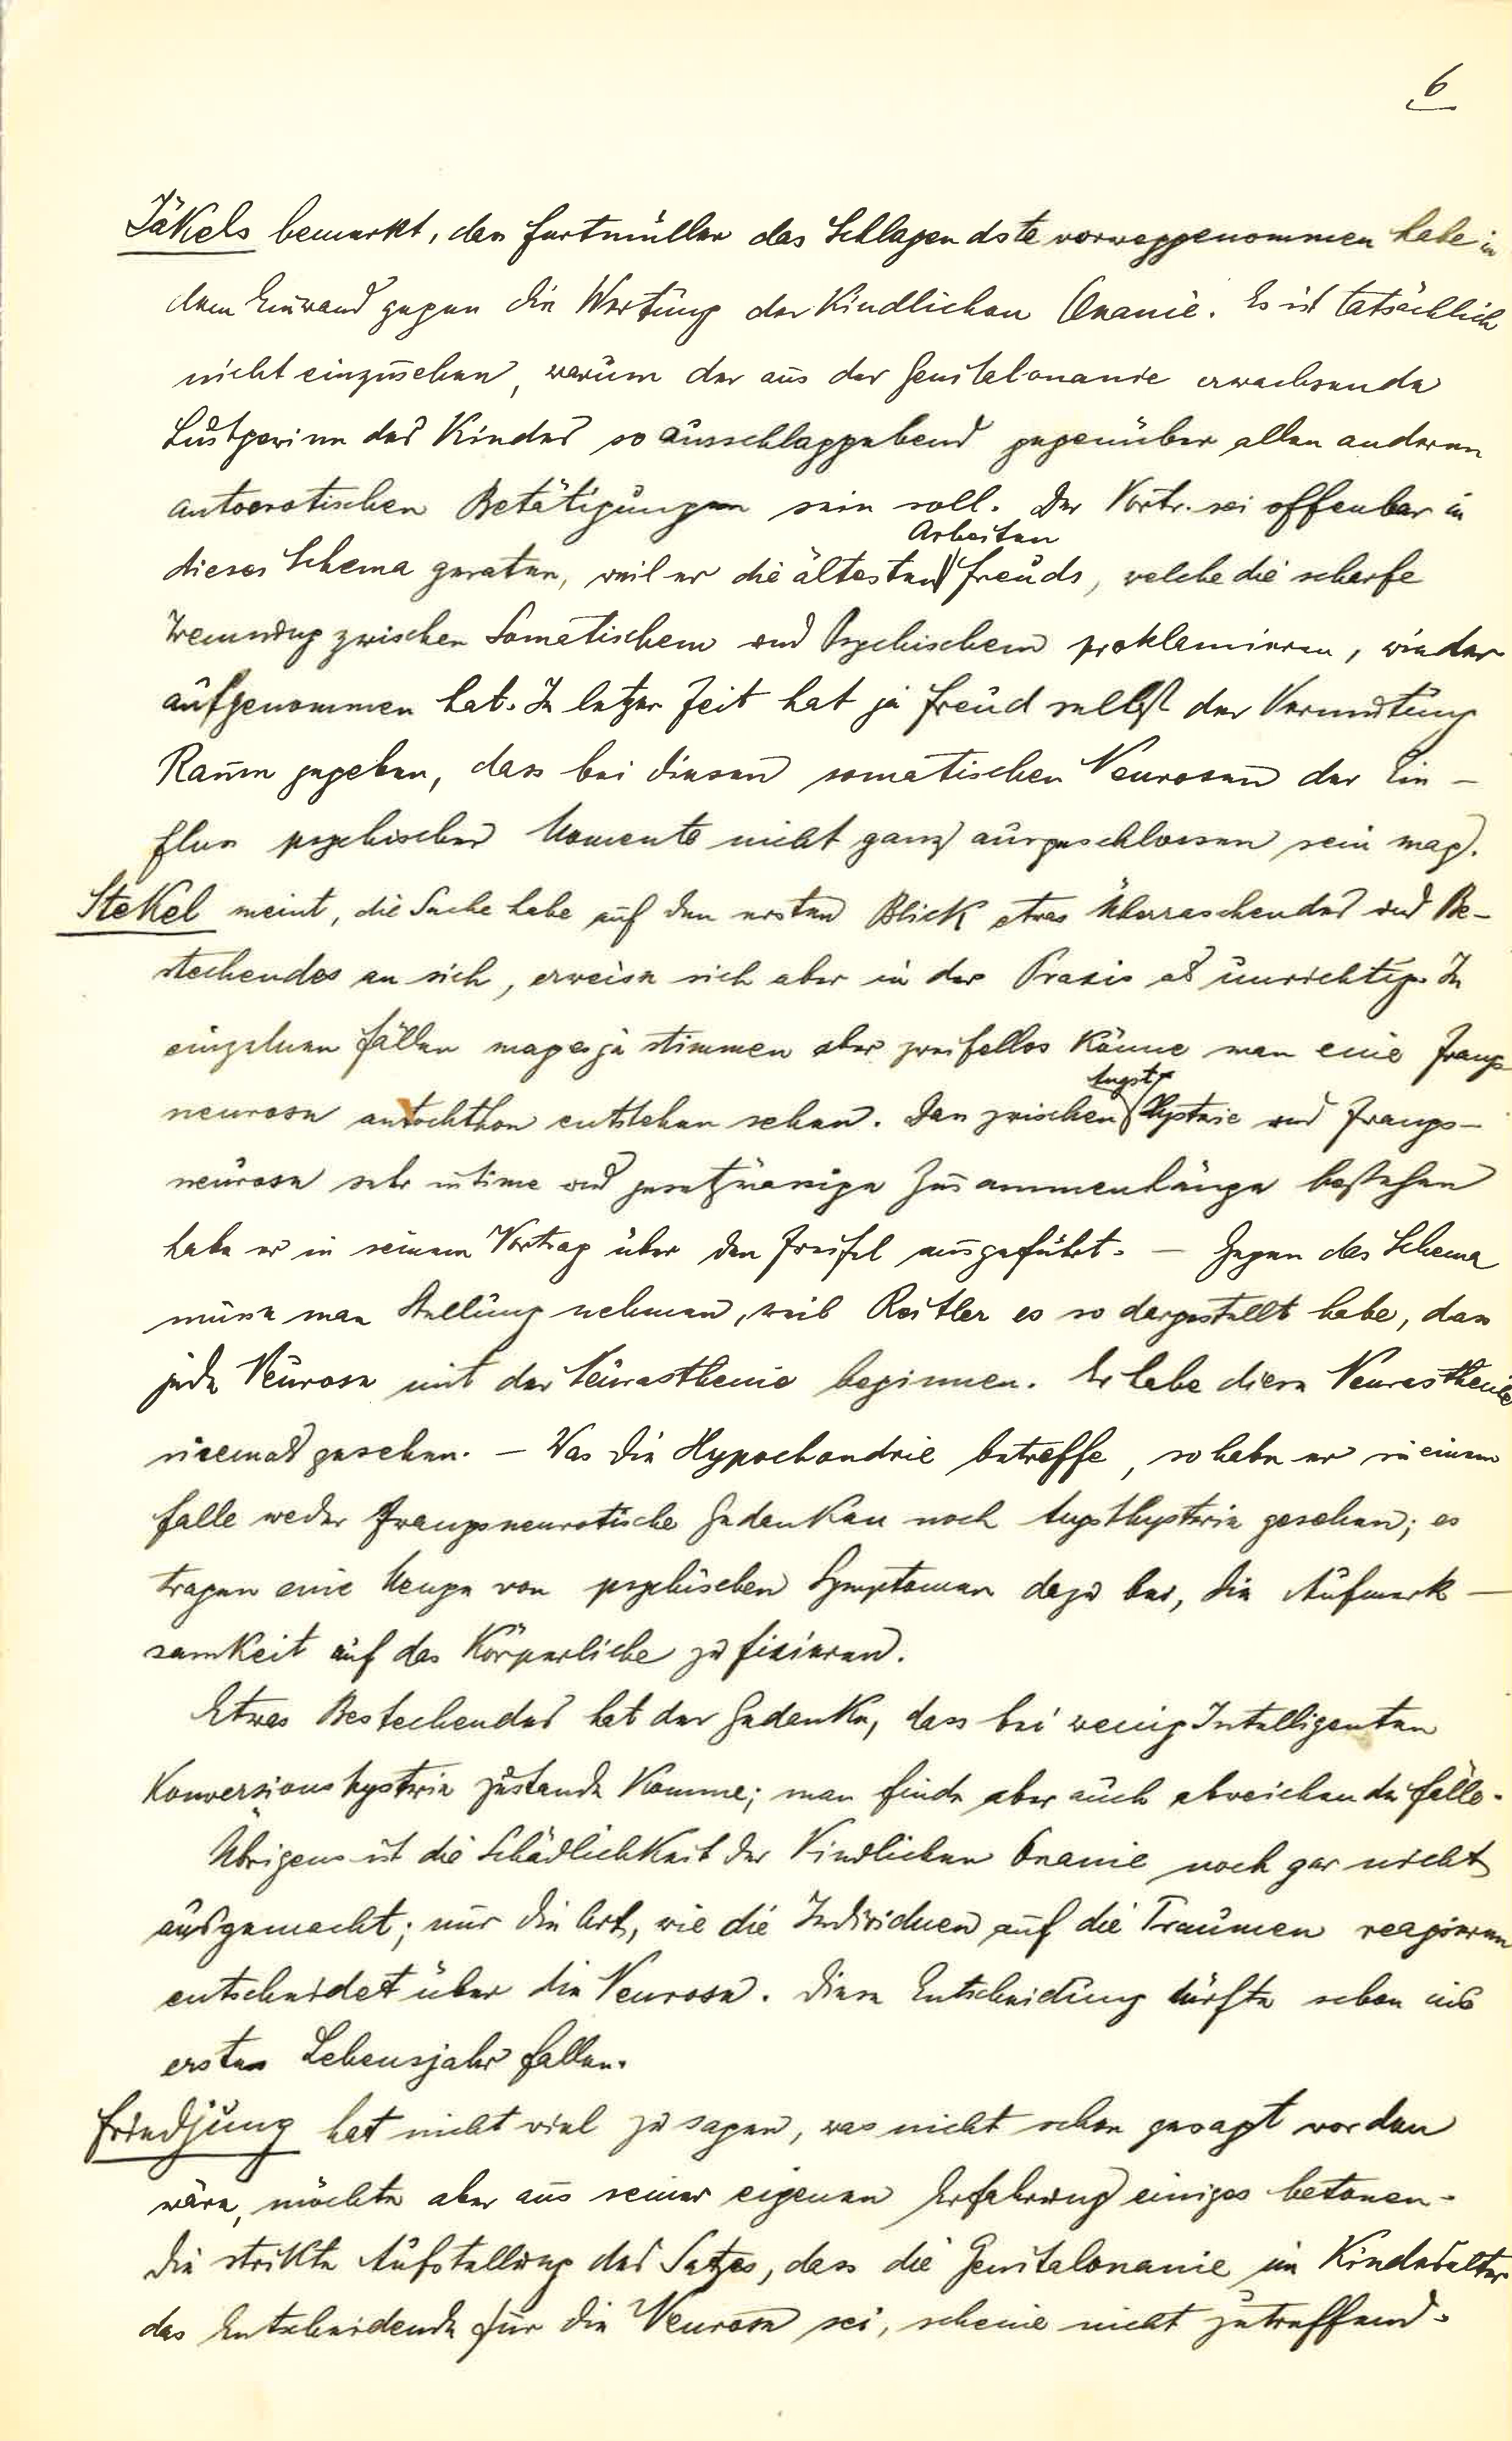 6
Jäkels bemerkt, dass Furtmüller das Schlagendste vorweggenommen habe in
dem Einwand gegen die Wertung der kindlichen Onanie. Es ist tatsächlich
nicht einzusehen, warum der aus der Genitalonanie erwachsende
Lustgewinn des Kindes so ausschlaggebend gegenüber allen anderen
autoerotischen Betätigungen sein soll. Der Vortr. sei offenbar in
Arbeiten
dieses Schema geraten, weil er die ältesten Freuds, welche die scharfe
Trennung zwischen Somatischem und Psychischem proklamieren, wieder
aufgenommen hat. In letzter Zeit hat ja Freud selbst der Vermutung
Raum gegeben, dass bei diesen somatischen Neurosen der Ein-
fluss psychischer Momente nicht ganz ausgeschlossen sein mag.
Stekel meint, die Sache habe auf den ersten Blick etwas Überraschendes und Be-
stechendes an sich, erweise sich aber in der Praxis als unrichtig. In
einzelnen Fällen mag es ja stimmen aber zweifellos könne man eine Zwangs-
Angst-
neurose autochthon entstehen sehen. Dass zwischen Hysterie und Zwangs-
neurose sehr intime und gesetzmässige Zusammenhänge bestehen
habe er in seinem Vortrag über den Zweifel ausgeführt. — Gegen das Schema
müsse man Stellung nehmen, weil Reitler es so dargestellt habe, dass
jede Neurose mit der Neurasthenie beginnen. Er habe diese Neurasthenie
niemals gesehen. — Was die Hypochondrie betreffe, so habe er in einem
Falle weder zwangsneurotische Gedanken noch Angsthysterie gesehen; es
tragen eine Menge von psychischen Symptomen dazu bei, die Aufmerk-
samkeit auf das Körperliche zu fixieren.
Etwas Bestechendes hat der Gedanke, dass bei wenig Intelligenten
Konversionshysterie zustande komme; man finde aber auch abweichende Fälle.
Übrigens ist die Schädlichkeit der kindlichen Onanie noch gar nicht
ausgemacht; nur die Art, wie die Individuen auf die Traumen reagieren
entscheidet über die Neurose. Diese Entscheidung dürfte schon ins
erste Lebensjahr fallen.
Friedjung hat nicht viel zu sagen, was nicht schon gesagt worden
wäre, möchte aber aus seiner eigenen Erfahrung einiges betonen.
Die strikte Aufstellung des Satzes, dass die Genitalonanie im Kindesalter
das Entscheidende für die Neurose sei, scheine nicht zutreffend.